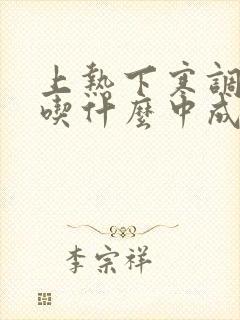 上熱下寒調
喫什麼中成
李宗祥